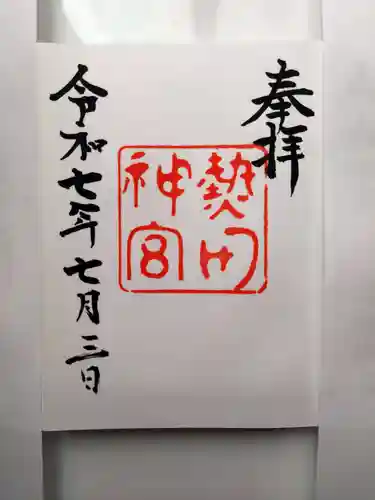 奉拝
熱田
神宮
令和七年七月三日